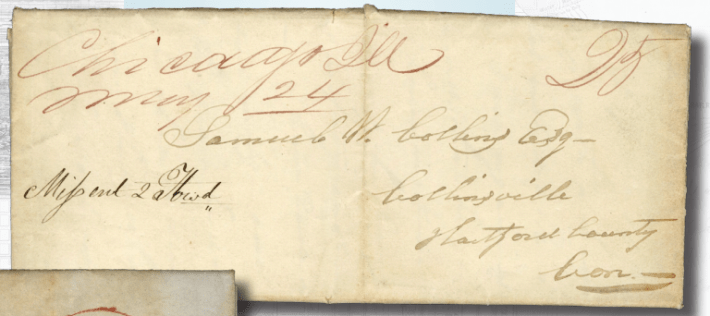 Chicago Ill
May 24
25
Samuel W. Collins Esq—
Missent & Fwd
Collinsville
Hartford County
Con.—